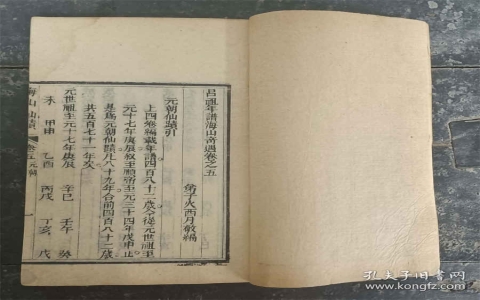 呂祖年譜海山奇遇卷之五
弟子火西月敬編
元朝仙蹟引
上四卷編載年譜四百八十二歲今從元世祖至
元十七年庚辰敘至順帝至元三十四年戊申止
是為元朝仙蹟凡八十九年合前四百八十二歲
共五百七十一年矣
元世祖至元十七年庚辰 辛巳 壬午 癸
未 甲申 乙酉 丙戌 丁亥 戊
海山仙蹟 卷五元朝
孔夫子旧书网
kongfz.com